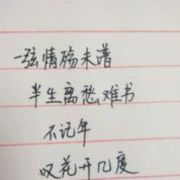 一弦情殇未谱
半生离愁难书
不记年
叹花开几度